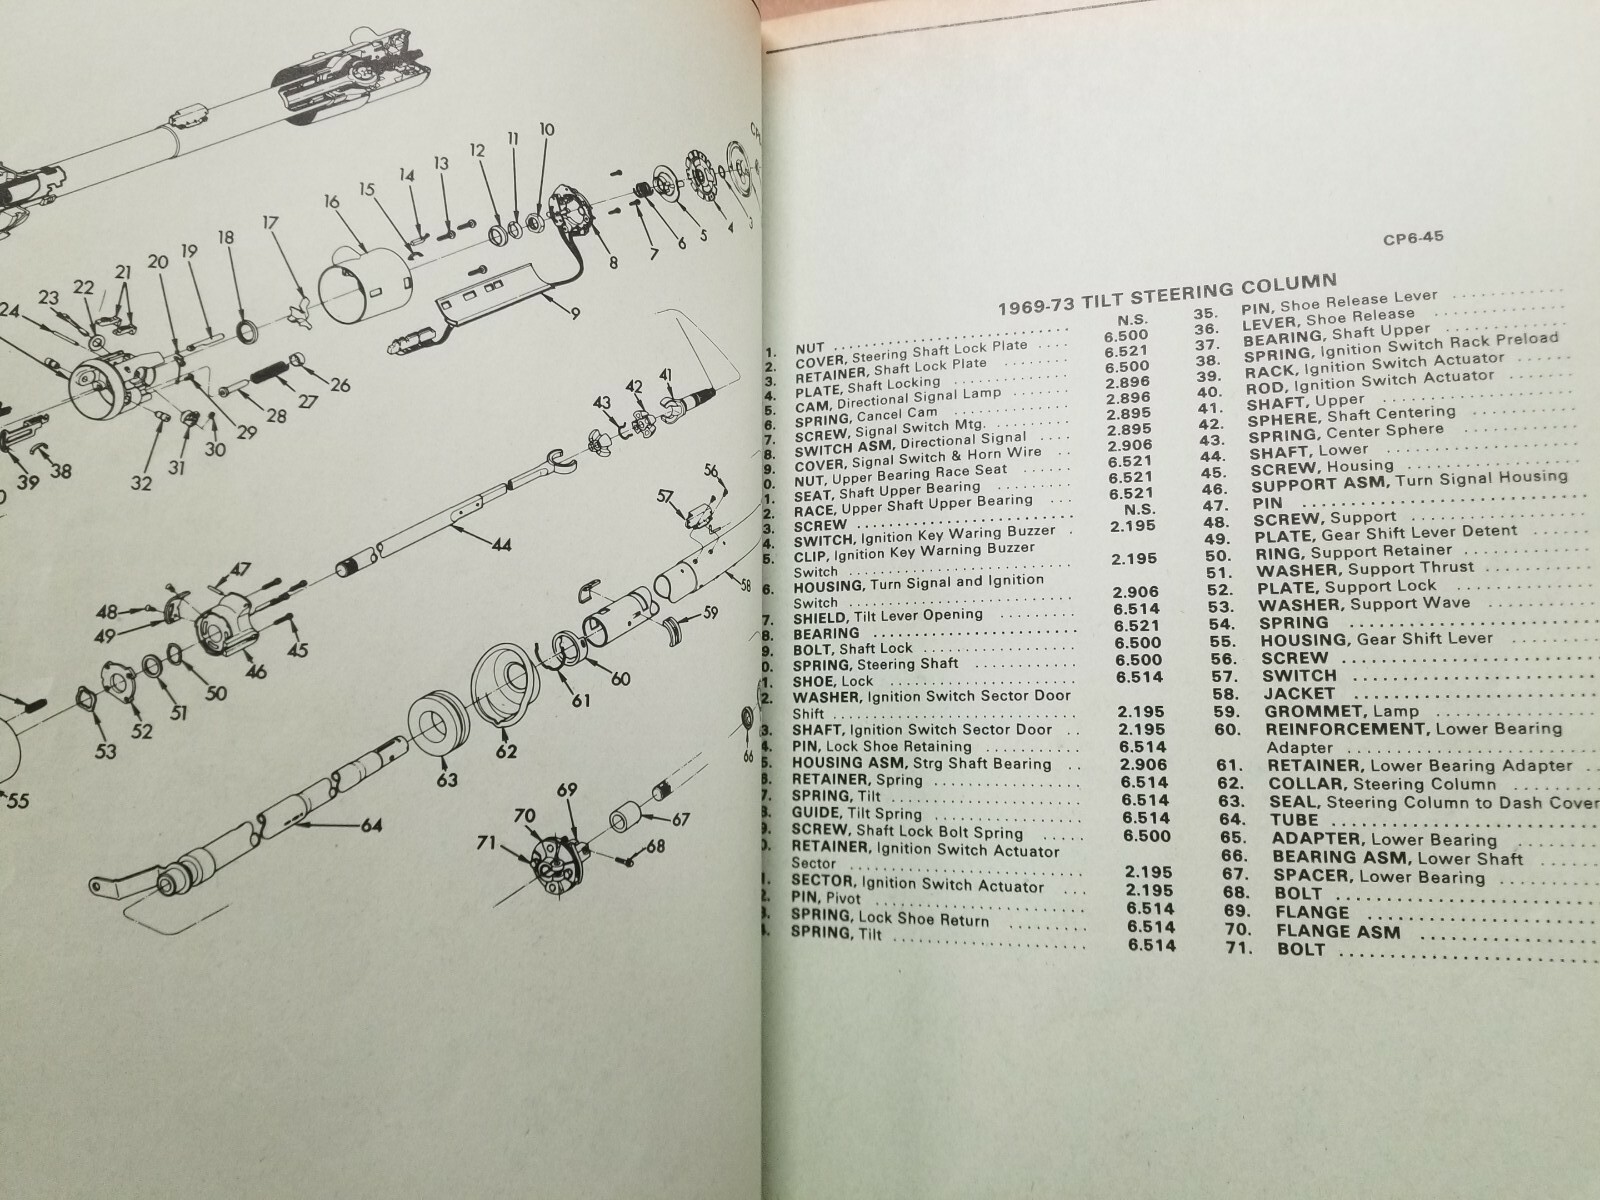 10
11
12
13
14
15
16
17
18
19
20
21
22
23
24
9
8
7
6
5
4
3
26
27
28
29
30
31
32
38
39
41
42
43
44
56
57
58
59
47
48
49
45
46
50
51
52
53
55
60
61
62
63
64
66
67
68
69
70
71
CP6-45
1969-73 TILT STEERING COLUMN
N.S.
1. NUT 6.500
2. COVER, Steering Shaft Lock Plate 6.521
3. RETAINER, Shaft Lock Plate 6.500
4. PLATE, Shaft Locking 2.896
5. CAM, Directional Signal Lamp 2.896
6. SPRING, Cancel Cam 2.895
7. SCREW, Signal Switch Mtg. 2.895
8. SWITCH ASM, Directional Signal 2.906
9. COVER, Signal Switch & Horn Wire 6.521
0. NUT, Upper Bearing Race Seat 6.521
1. SEAT, Shaft Upper Bearing 6.521
2. RACE, Upper Shaft Upper Bearing N.S.
3. SCREW 2.195
4. SWITCH, Ignition Key Waring Buzzer
5. CLIP, Ignition Key Warning Buzzer
Switch 2.195
6. HOUSING, Turn Signal and Ignition
Switch 2.906
7. SHIELD, Tilt Lever Opening 6.514
8. BEARING 6.521
9. BOLT, Shaft Lock 6.500
0. SPRING, Steering Shaft 6.500
1. SHOE, Lock 6.514
2. WASHER, Ignition Switch Sector Door
Shift 2.195
3. SHAFT, Ignition Switch Sector Door 2.195
4. PIN, Lock Shoe Retaining 6.514
5. HOUSING ASM, Strg Shaft Bearing 2.906
RETAINER, Spring 6.514
7. SPRING, Tilt 6.514
GUIDE, Tilt Spring 6.514
9. SCREW, Shaft Lock Bolt Spring 6.500
0. RETAINER, Ignition Switch Actuator
Sector 2.195
1. SECTOR, Ignition Switch Actuator 2.195
2. PIN, Pivot 6.514
3. SPRING, Lock Shoe Return 6.514
4. SPRING, Tilt 6.514
35. PIN, Shoe Release Lever
36. LEVER, Shoe Release
37. BEARING, Shaft Upper
38. SPRING, Ignition Switch Rack Preload
39. RACK, Ignition Switch Actuator
40. ROD, Ignition Switch Actuator
41. SHAFT, Upper
42. SPHERE, Shaft Centering
43. SPRING, Center Sphere
44. SHAFT, Lower
45. SCREW, Housing
46. SUPPORT ASM, Turn Signal Housing
47. PIN
48. SCREW, Support
49. PLATE, Gear Shift Lever Detent
50. RING, Support Retainer
51. WASHER, Support Thrust
52. PLATE, Support Lock
53. WASHER, Support Wave
54. SPRING
55. HOUSING, Gear Shift Lever
56. SCREW
57. SWITCH
58. JACKET
59. GROMMET, Lamp
60. REINFORCEMENT, Lower Bearing
Adapter
61. RETAINER, Lower Bearing Adapter
62. COLLAR, Steering Column
63. SEAL, Steering Column to Dash Cover
64. TUBE
65. ADAPTER, Lower Bearing
66. BEARING ASM, Lower Shaft
67. SPACER, Lower Bearing
68. BOLT
69. FLANGE
70. FLANGE ASM
71. BOLT